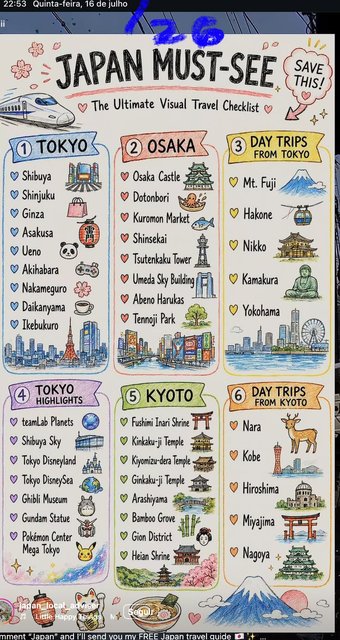 22:53 Quinta-feira, 16 de julho
/26
JAPAN MUST-SEE
The Ultimate Visual Travel Checklist
SAVE
THIS!
1 TOKYO
Shibuya
Shinjuku
Ginza
Asakusa
Ueno
Akihabara
Nakameguro
Daikanyama
Ikebukuro
2 OSAKA
Osaka Castle
Dotonbori
Kuromon Market
Shinsekai
Tsutenkaku Tower
Umeda Sky Building
Abeno Harukas
Tennoji Park
3 DAY TRIPS
FROM TOKYO
Mt. Fuji
Hakone
Nikko
Kamakura
Yokohama
4 TOKYO
HIGHLIGHTS
teamLab Planets
Shibuya Sky
Tokyo Disneyland
Tokyo DisneySea
Ghibli Museum
Gundam Statue
Pokémon Center
Mega Tokyo
5 KYOTO
Fushimi Inari Shrine
Kinkaku-ji Temple
Kiyomizu-dera Temple
Ginkaku-ji Temple
Arashiyama
Bamboo Grove
Gion District
Heian Shrine
6 DAY TRIPS
FROM KYOTO
Nara
Kobe
Hiroshima
Miyajima
Nagoya
japan_local_advice
Little Happy Things
Seguir
mment “Japan” and I'll send you my FREE Japan travel guide